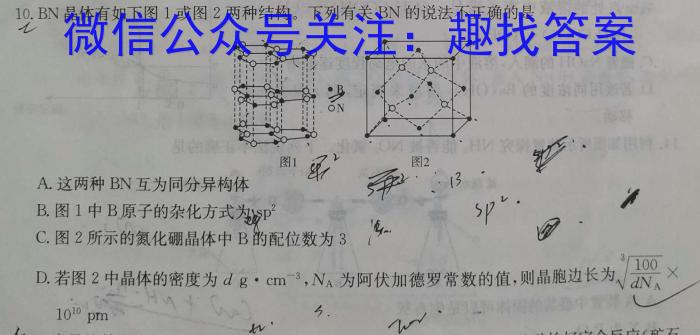 10. BN 晶体有如下图 1 或图 2 两种结构。下列有关 BN 的说法不正确的是
微信公众号关注：趣找答案
●B
○N
图1
图2
A. 这两种 BN 互为同分异构体
B. 图 1 中 B 原子的杂化方式为 sp²
C. 图 2 所示的氮化硼晶体中 B 的配位数为 3
13
sp²
D. 若图 2 中晶体的密度为 d g·cm⁻³, N_A 为阿伏加德罗常数的值, 则晶胞边长为 ∛(100/dN_A) ×
10¹⁰ pm